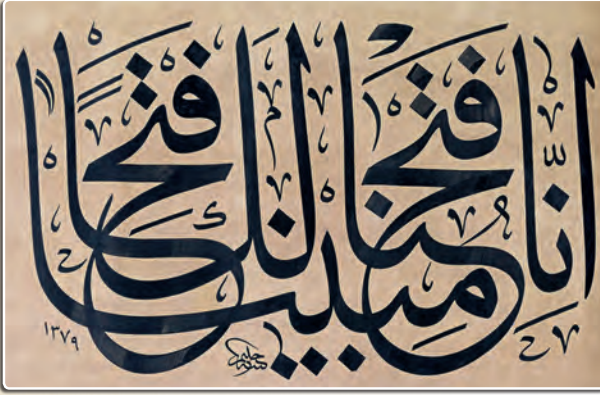 إِنَّا فَتَحْنَا لَكَ فَتْحًا مُبِينًا
١٣٧٩